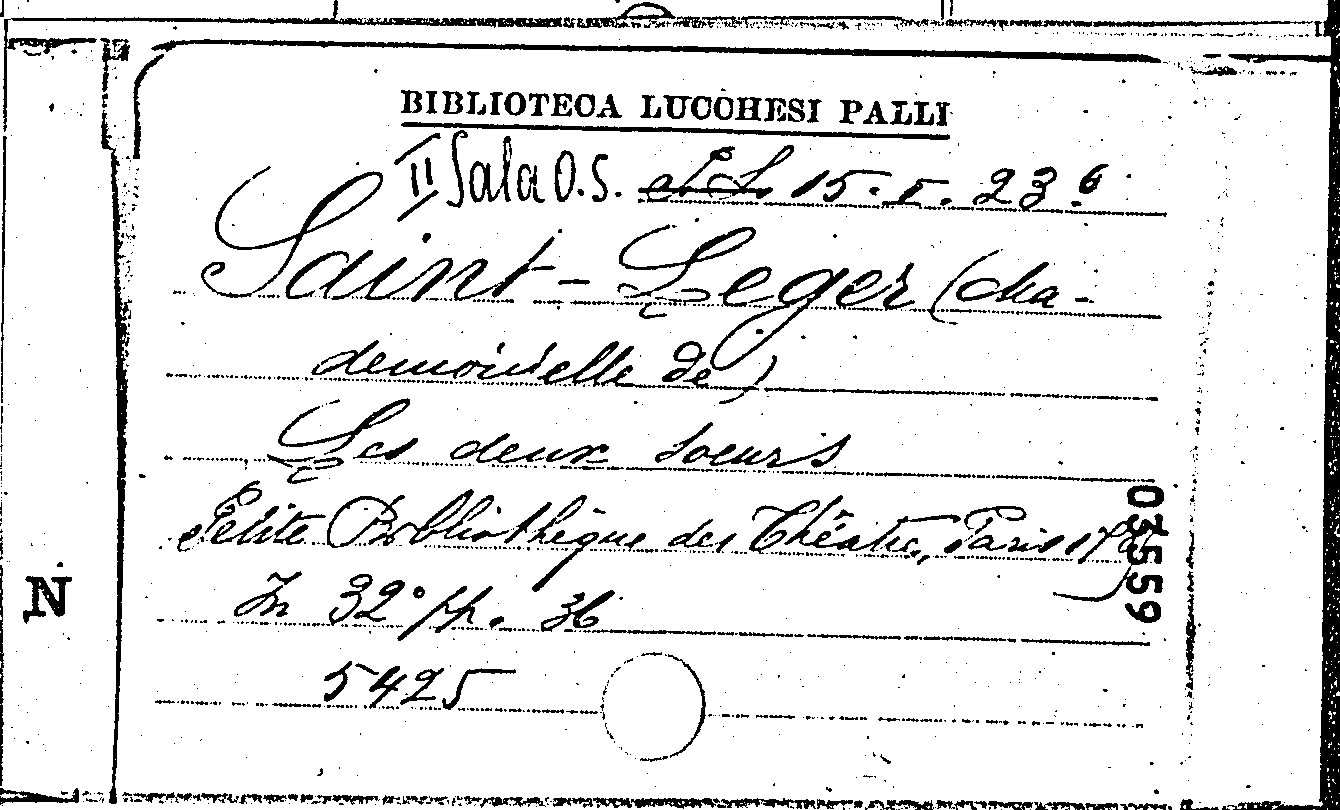 BIBLIOTECA LUCCHESI PALLI
II Sala O.S. 15. I. 23 6
Saint-Leger (Ma-
demoiselle de)
Les deux soeurs
Petite Bibliothèque des Théatres, Paris
In 32° pp. 36
5425
03559
N